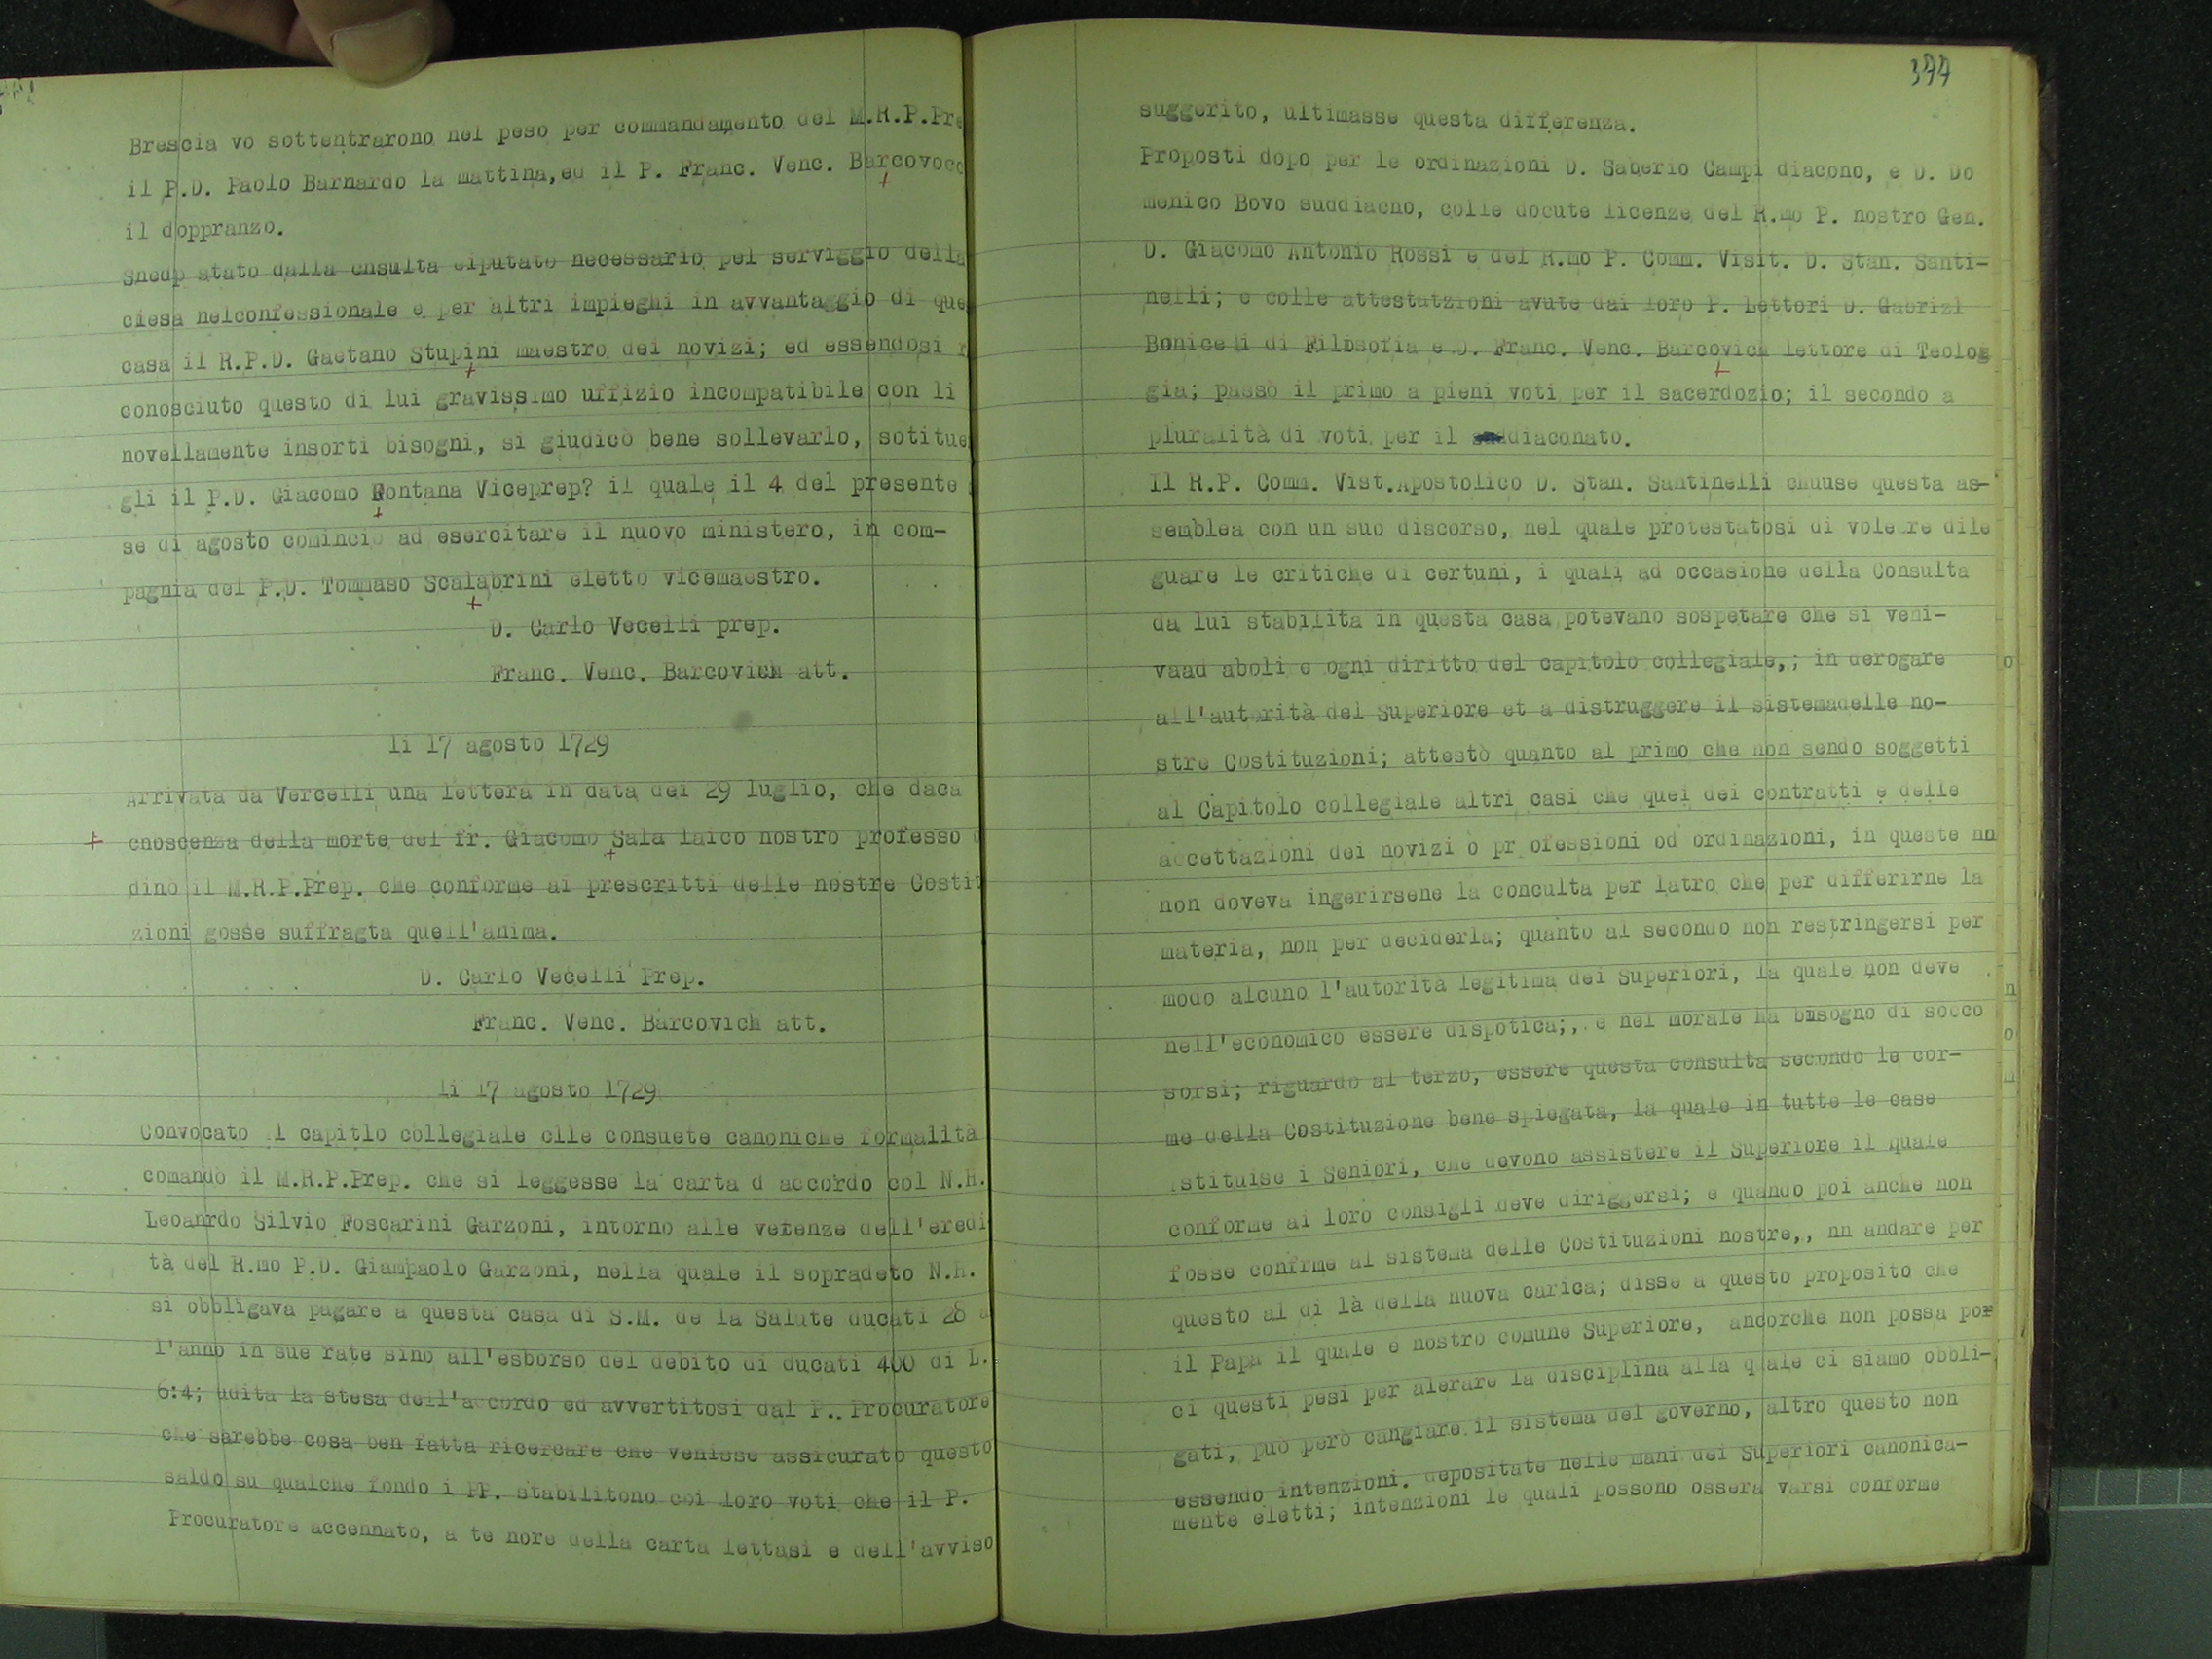 Brescia vo sottentrarono nel peso per commandamento del M.R.P.Pre
il P.D. Paolo Barnardo la mattina,ed il P. Franc. Venc. Barcovocc
il doppranzo.
Snedp stato dalla cnsulta eiputato necessario pel serviggio della
ciesa nelconfessionale e per altri impieghi in avvantaggio di que
casa il R.P.D. Gaetano Stupini maestro dei novizi; ed essendosi r
conosciuto questo di lui gravissimo uffizio incompatibile con li
novellamente insorti bisogni, si giudicò bene sollevarlo, sotitue
gli il P.D. Giacomo Fontana Viceprep? il quale il 4 del presente
se di agosto cominciò ad esercitare il nuovo ministero, in com-
pagnia del P.D. Tommaso Scalabrini eletto vicemaestro.
D. Carlo Vecelli prep.
Franc. Venc. Barcovich att.
li 17 agosto 1729
Arrivata da Vercelli una lettera in data dei 29 luglio, che daca
cnoscenza della morte del fr. Giacomo Sala laico nostro professo
dinò il M.R.P.Prep. che conforme ai prescritti delle nostre Costit
zioni gosse suffragta quell'anima.
D. Carlo Vecelli Prep.
Franc. Venc. Barcovich att.
li 17 agosto 1729
Convocato il capitlo collegiale clle consuete canoniche formalità
comandò il M.R.P.Prep. che si leggesse la carta d accordo col N.H.
Leoanrdo Silvio Foscarini Garzoni, intorno alle vetenze dell'eredi
tà del R.mo P.D. Giampaolo Garzoni, nella quale il sopradeto N.h.
si obbligava pagare a questa casa di S.M. de la Salute ducati 28 a
l'anno in sue rate sino all'esborso del debito di ducati 400 di L.
6:4; udita la stesa dell'accordo ed avvertitosi dal P.. Procuratore
che sarebbe cosa ben fatta ricercare che venisse assicurato questo
saldo su qualche fondo i PP. stabilitono coi loro voti che il P.
Procuratore accennato, a te nore della carta lettasi e dell'avviso
344
suggerito, ultimasse questa differenza.
Proposti dopo per le ordinazioni D. Saberio Campi diacono, e D. Do
menico Bovo suddiacno, colle docute licenze del R.mo P. nostro Gen.
D. Giacomo Antonio Rossi e del R.mo P. Comm. Visit. D. Stan. Santi-
nelli; e colle attestatzioni avute dai loro P. Lettori D. Gabrizl
Boniceli di Filosofia e D. Franc. Venc. Barcovich lettore di Teolog
gia; passò il primo a pieni voti per il sacerdozio; il secondo a
pluralità di voti per il diaconato.
Il R.P. Comm. Vist.Apostolico D. Stan. Santinelli chuuse questa as-
semblea con un suo discorso, nel quale protestatosi di vole re dile
guare le critiche di certuni, i quali ad occasione della Consulta
da lui stabilita in questa casa potevano sospetare che si veni-
vaad aboli e ogni diritto del capitolo collegiale,; in derogare
all'autorità del Superiore et a distruggere il sistemadelle no-
stre Costituzioni; attestò quanto al primo che non sendo soggetti
al Capitolo collegiale altri casi che quei dei contratti e delle
accettazioni dei novizi o pr ofessioni od ordinazioni, in queste nn
non doveva ingerirsene la conculta per latro che per differirne la
materia, non per deciderla; quanto al secondo non restringersi per
modo alcuno l'autorità legitima dei Superiori, la quale non deve
nell'economico essere dispotica;, e nel morale ha bisogno di socco
sorsi; riguardo al terzo, essere questa consulta secondo le cor-
me della Costituzione bene spiegata, la quale in tutte le case
istituise i Seniori, che devono assistere il Superiore il quale
conforme ai loro consigli deve diriggersi; e quando poi anche non
fosse confrme al sistema delle Costituzioni nostre,, nn andare per
questo al di là della nuova carica; disse a questo proposito che
il Papa il quale e nostro comune Superiore, ancorche non possa por
ci questi pesi per alerare la disciplina alla quale ci siamo obbli-
gati, può però cangiare il sistema del governo, altro questo non
essendo intenzioni. depositate nelle mani dei Superiori canonica-
mente eletti; intenzioni le quali possono ossera varsi conforme